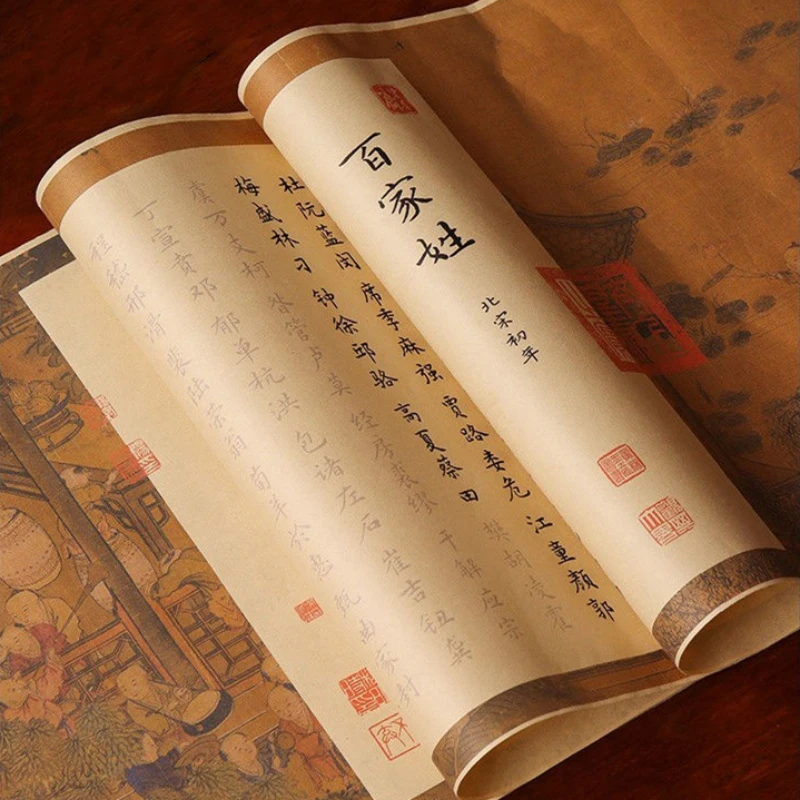 百家姓
北宋初年
杜阮蓝闵 席季麻强 贾路娄危 江童颜郭
梅盛林刁 钟徐邱骆 高夏蔡田 樊胡凌霍
虞万支柯 昝管卢莫 经房裘缪 干解应宗
丁宣贲邓 郁单杭洪 包诸左石 崔吉钮龚
程嵇邢滑 裴陆荣翁 荀羊於惠 甄曲家封